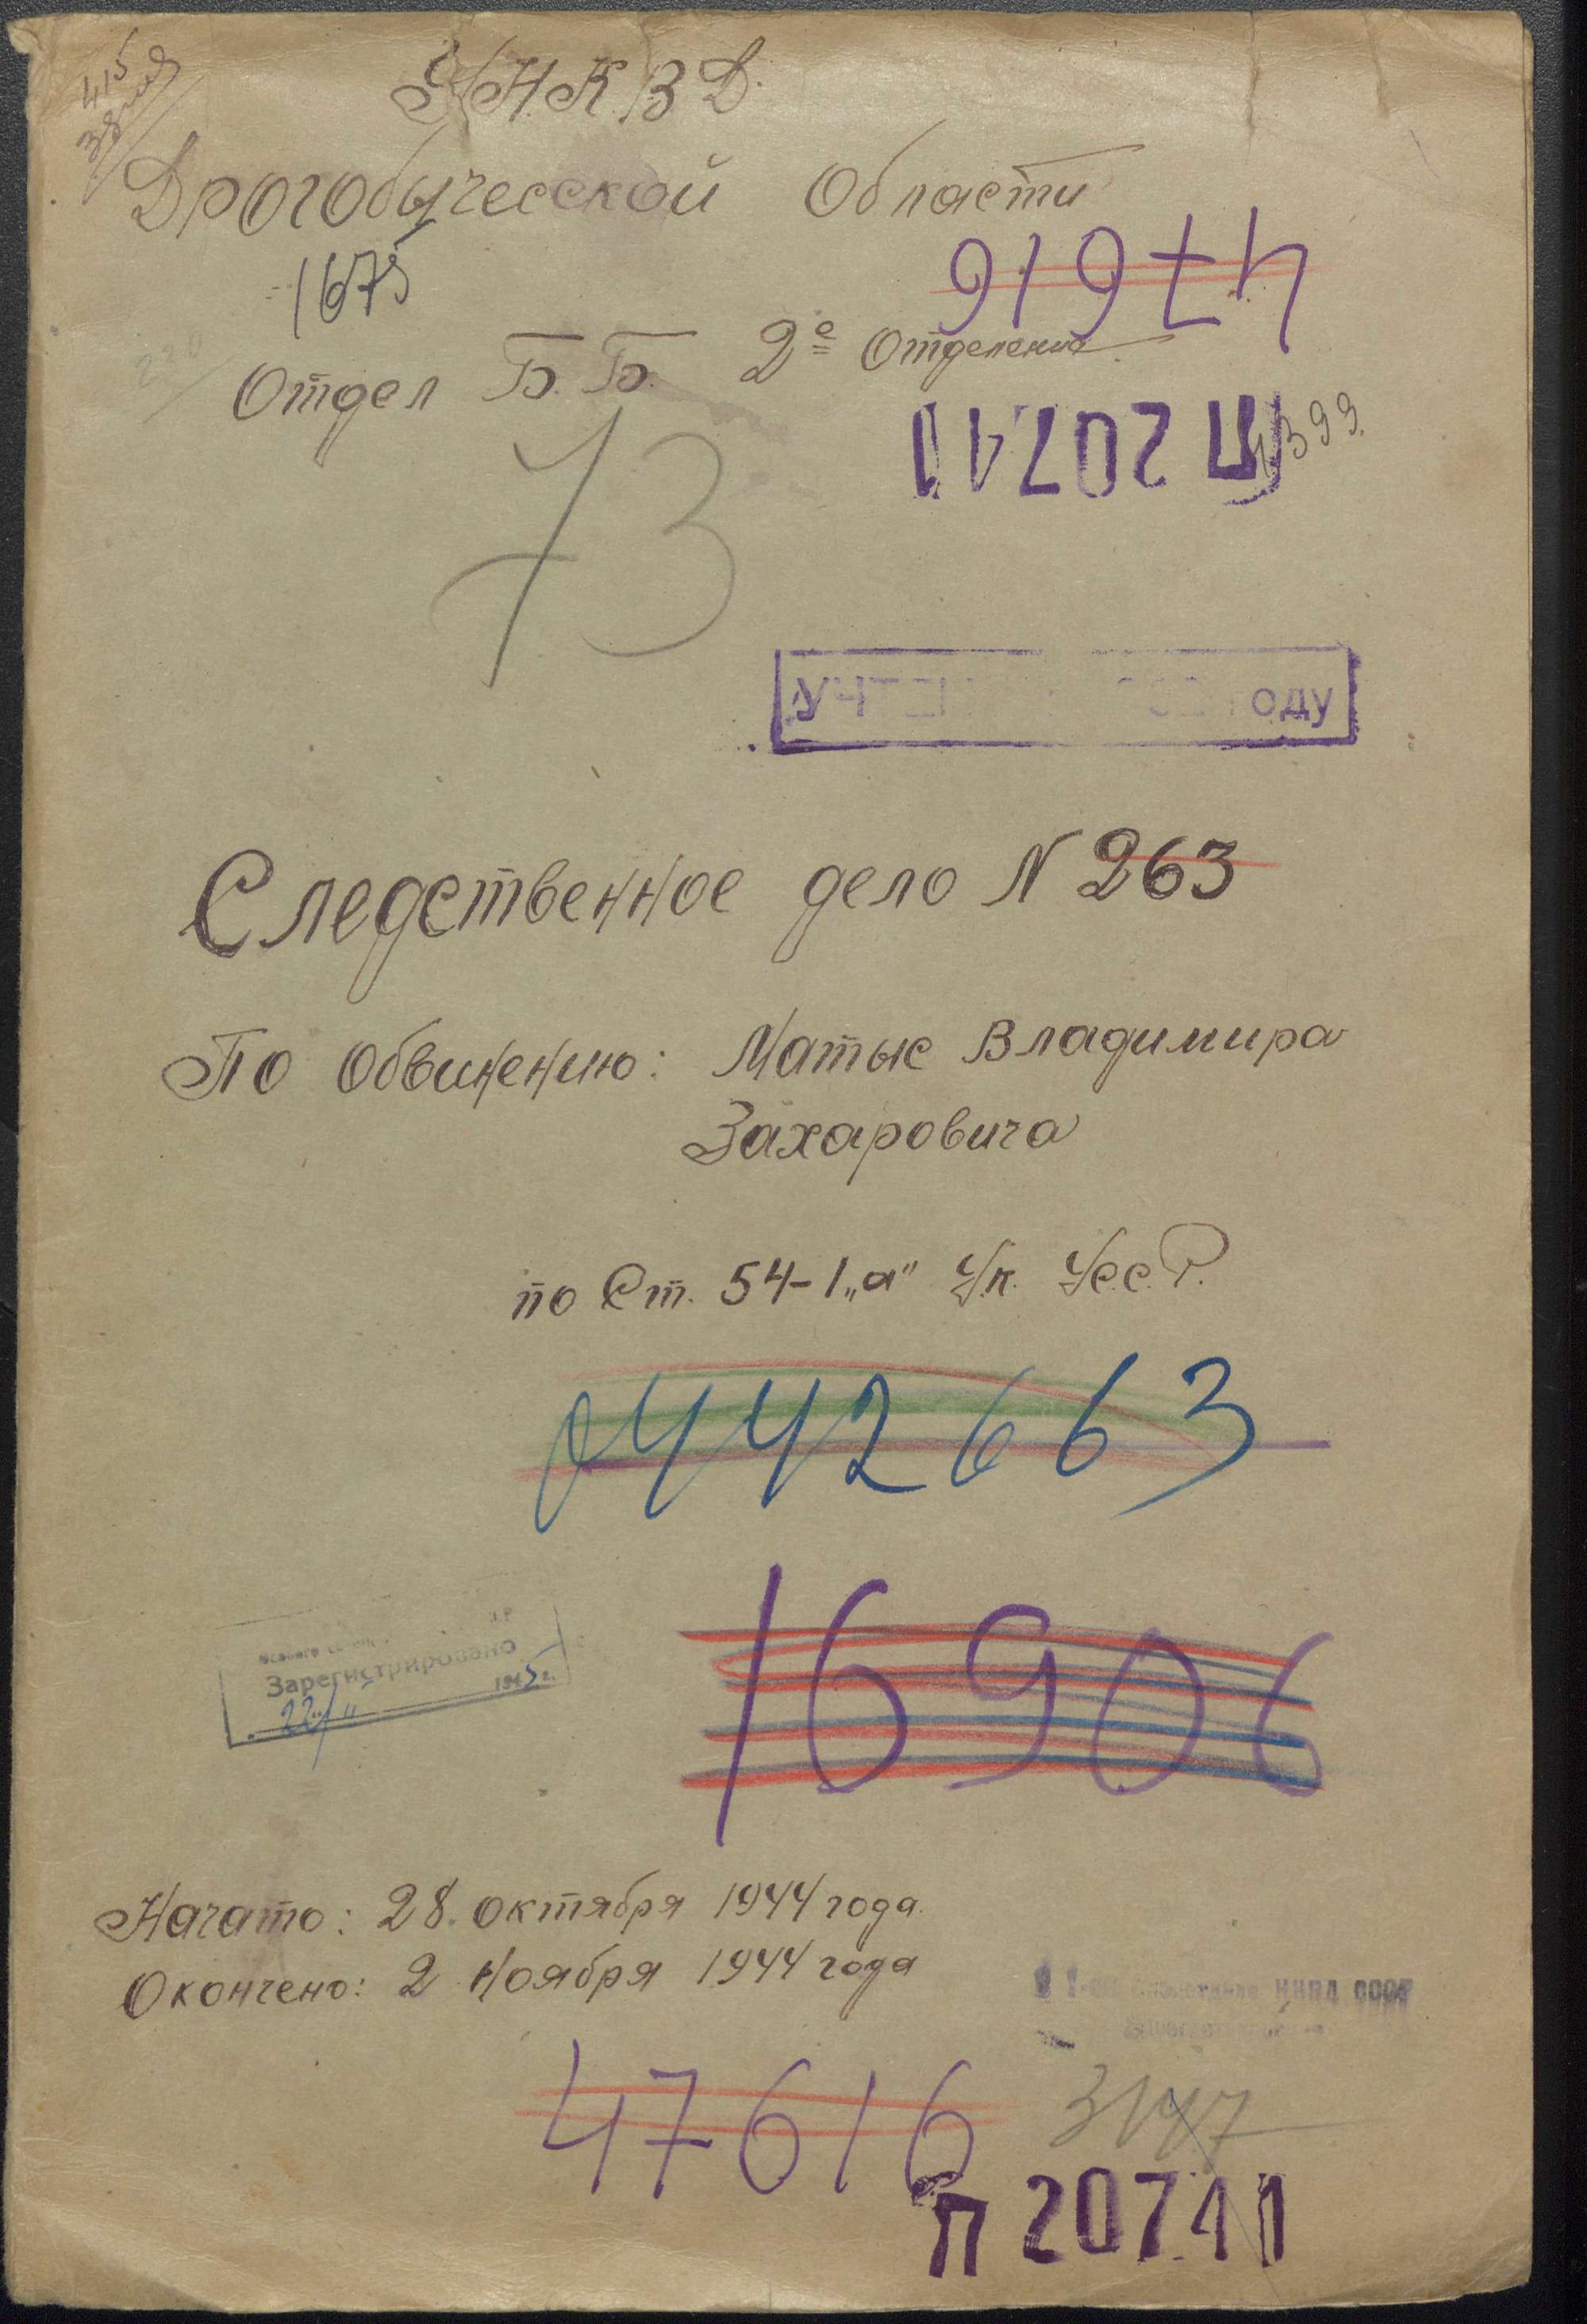 415
УНКВД
Дрогобыческой Области
1675
47616
Отдел Б.Б. 2ое Отделение
220
П 20741
1399
73
оду
Следственное дело N 263
По Обвинению: Матыс Владимира
Захаровича
по Ст. 54-1„а" Ук. Усс.Р.
0442663
Зарегистрировано
22/ " 1945 г.
16906
Начато: 28. октября 1944 года.
Окончено: 2 Ноября 1944 года
НКВД СССР
47616
3147
П 20741